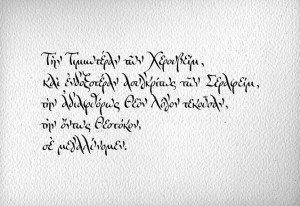 Τὴν Τιμιωτέραν τῶν Χερουβεὶμ,
καὶ ἐνδοξοτέραν ἀσυγκρίτως τῶν Σεραφεὶμ,
τὴν ἀδιαφθόρως Θεὸν Λόγον τεκοῦσαν,
τὴν ὄντως Θεοτόκον,
σὲ μεγαλύνομεν.